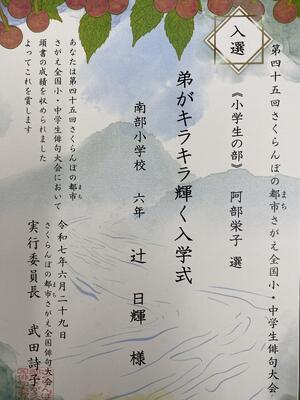 入選
第四十五回さくらんぼの都市さがえ全国小・中学生俳句大会
まち
《小学生の部》 阿部栄子 選
弟がキラキラ輝く入学式
南部小学校 六年 辻 日輝 様
あなたは第四十五回さくらんぼの都市
まち
さがえ全国小・中学生俳句大会において
頭書の成績を収められました
よってこれを賞します
令和七年六月二十九日
さくらんぼの都市さがえ全国俳句大会
まち
実行委員長 武田詩子